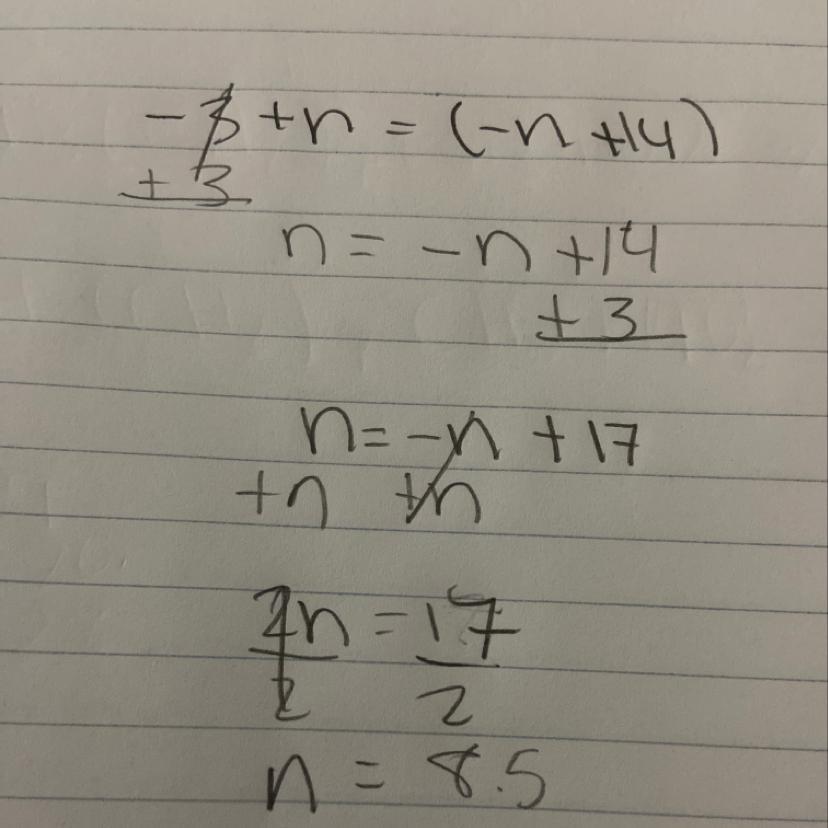 -3 + n = (-n + 14)
+ 3
n = -n + 14
+ 3
n = -n + 17
+n +n
2n = 17
2 2
n = 8.5